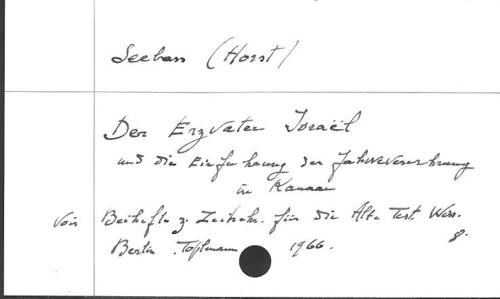 Seebass (Horst)
Der Erzvater Israël
und die Einfuhrung der Jahweverehrung
in Kanaan
Voir Beihefte z. Zeitsch. für die Alte Test. Wiss. 8.
Berlin. Töpelmann 1966.